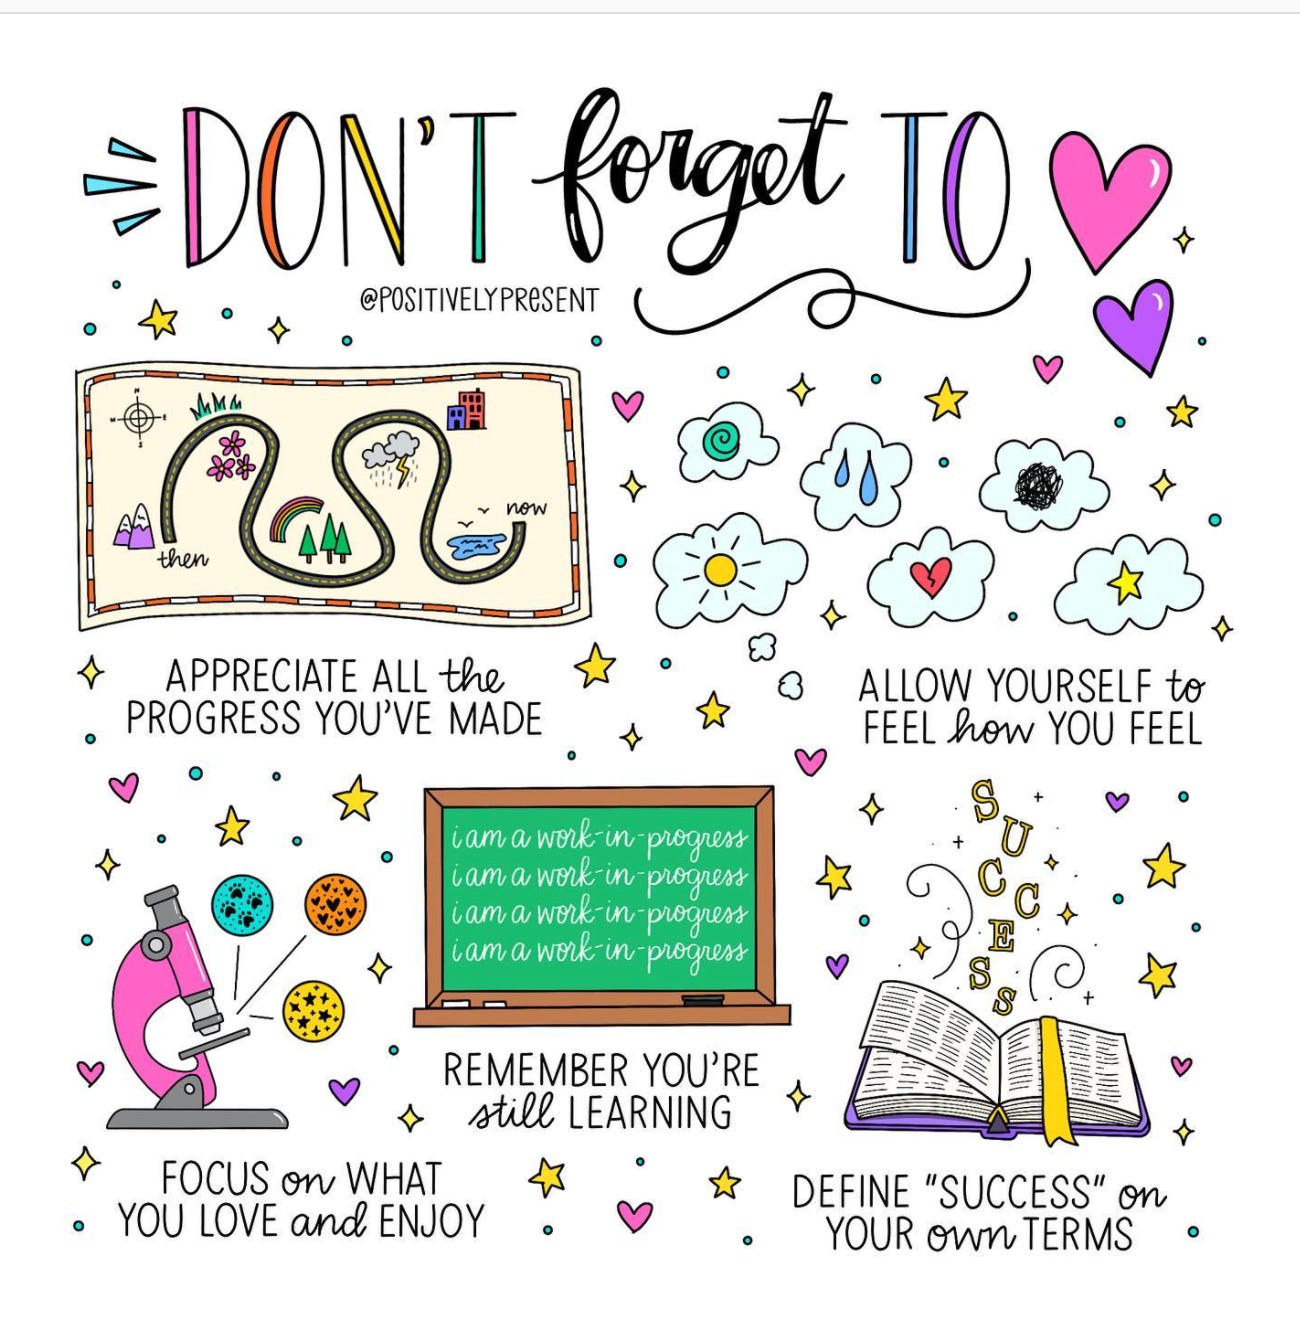 DON'T forget TO
@POSITIVELYPRESENT
N
W E
S
then
now
APPRECIATE ALL the
PROGRESS YOU'VE MADE
ALLOW YOURSELF to
FEEL how YOU FEEL
i am a work-in-progress
i am a work-in-progress
i am a work-in-progress
i am a work-in-progress
REMEMBER YOU'RE
still LEARNING
SUCCESS
FOCUS on WHAT
YOU LOVE and ENJOY
DEFINE "SUCCESS" on
YOUR own TERMS